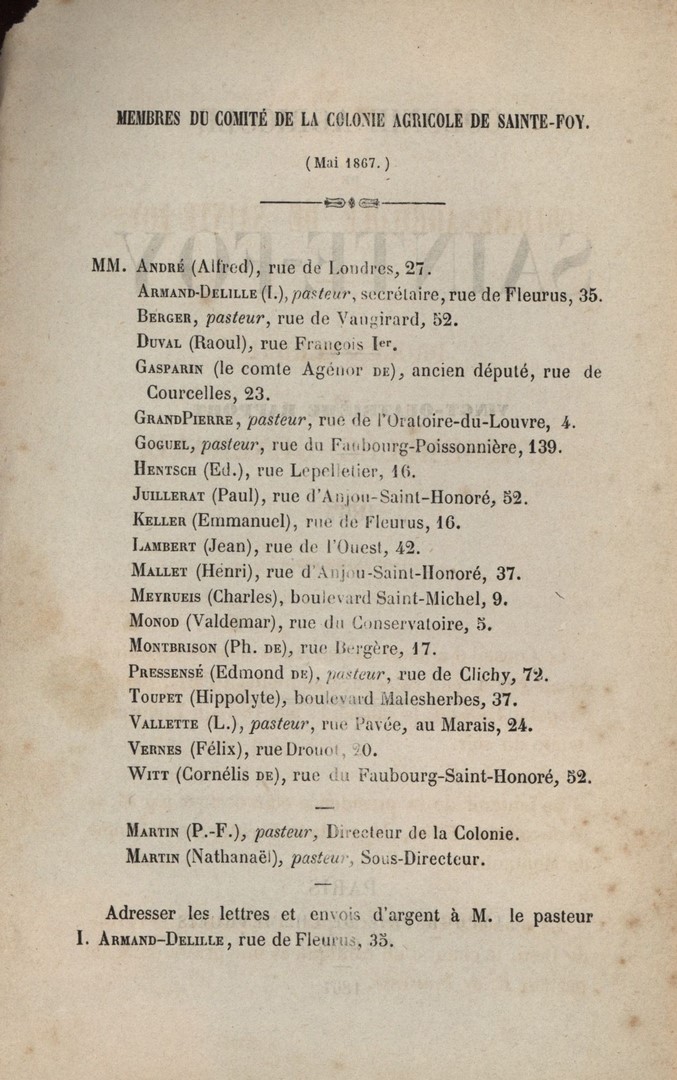 MEMBRES DU COMITÉ DE LA COLONIE AGRICOLE DE SAINTE-FOY.
(Mai 1867.)
MM. ANDRÉ (Alfred), rue de Londres, 27.
ARMAND-DELILLE (I.), pasteur, secrétaire, rue de Fleurus, 35.
BERGER, pasteur, rue de Vaugirard, 52.
DUVAL (Raoul), rue François Ier.
GASPARIN (le comte Agénor DE), ancien député, rue de
Courcelles, 23.
GRANDPIERRE, pasteur, rue de l'Oratoire-du-Louvre, 4.
GOGUEL, pasteur, rue du Faubourg-Poissonnière, 139.
HENTSCH (Ed.), rue Lepelletier, 16.
JUILLERAT (Paul), rue d'Anjou-Saint-Honoré, 52.
KELLER (Emmanuel), rue de Fleurus, 16.
LAMBERT (Jean), rue de l'Ouest, 42.
MALLET (Henri), rue d'Anjou-Saint-Honoré, 37.
MEYRUEIS (Charles), boulevard Saint-Michel, 9.
MONOD (Valdemar), rue du Conservatoire, 5.
MONTBRISON (Ph. DE), rue Bergère, 17.
PRESSENSÉ (Edmond DE), pasteur, rue de Clichy, 72.
TOUPET (Hippolyte), boulevard Malesherbes, 37.
VALLETTE (L.), pasteur, rue Pavée, au Marais, 24.
VERNES (Félix), rue Drouot, 20.
WITT (Cornélis DE), rue du Faubourg-Saint-Honoré, 52.
MARTIN (P.-F.), pasteur, Directeur de la Colonie.
MARTIN (Nathanaël), pasteur, Sous-Directeur.
Adresser les lettres et envois d'argent à M. le pasteur
I. ARMAND-DELILLE, rue de Fleurus, 35.